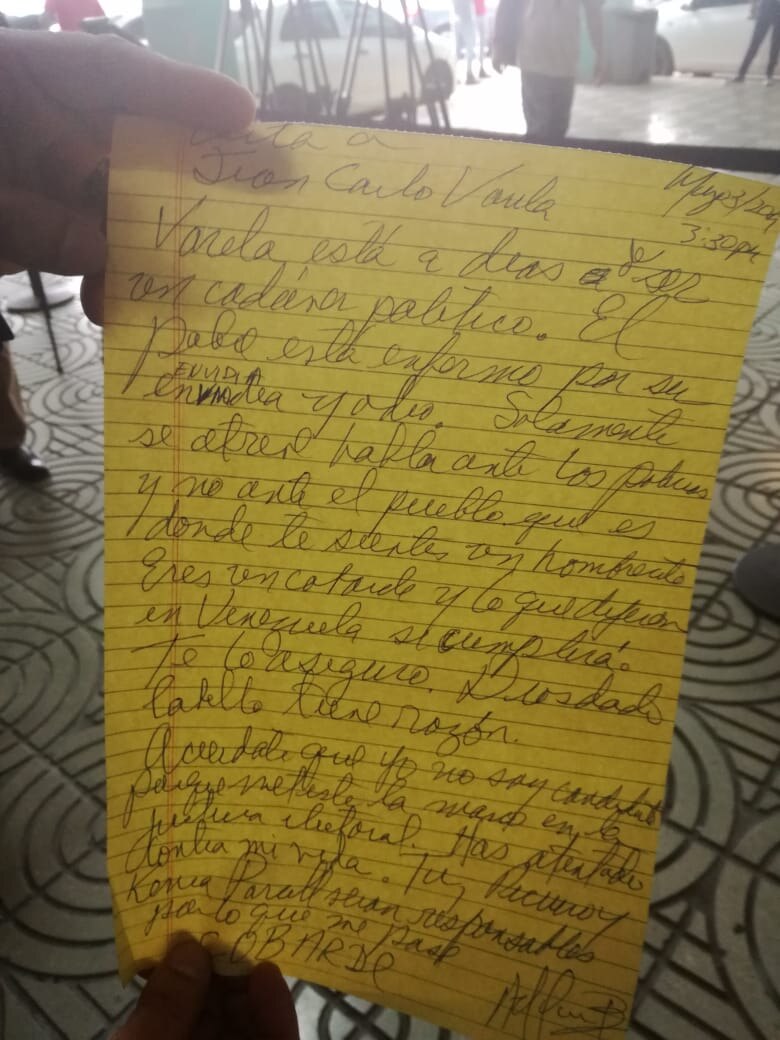 Carta a
Juan Carlo Varela
Mayo 3/2019
3:30 pm
Varela está a dias de ser
un cadáver político. El
pobre está enfermo por su
ENVIDIA
envidia y odio. Solamente
se atreve habla ante los pobres
y no ante el pueblo que es
donde te sientes un hombrecito
Eres un cobarde y lo que dijeron
en Venezuela se cumplirá.
Te lo aseguro. Diosdado
Cabello tiene razón.
Acuerdate que yo no soy candidato
porque metiste la mano en la
justicia electoral. Has atentado
contra mi vida. Tu, y
Kenia Porcell seran responsables
por lo que me pase
COBARDE